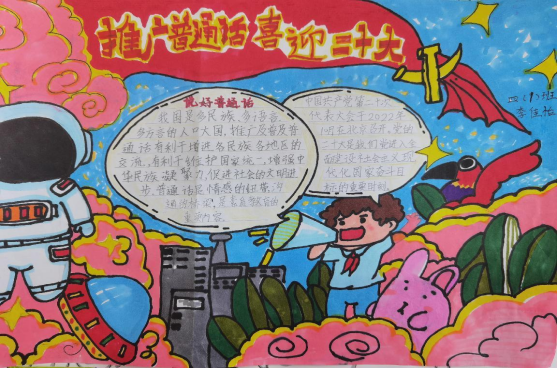 推广普通话 喜迎二十大
四(1)班
说好普通话
我国是多民族、多语言、
多方言的人口大国,推广及普及普
通话有利于增进各民族各地区的
交流,有利于维护国家统一,增强中
华民族凝聚力,促进社会的文明进
步。普通话是情感的纽带,沟
通的桥梁,是素质教育的
重要内容。
中国共产党第二十次
代表大会于2022年
在北京召开,党的
二十大是我们党进入全
面建设社会主义现
代化国家奋斗目
标的重要时